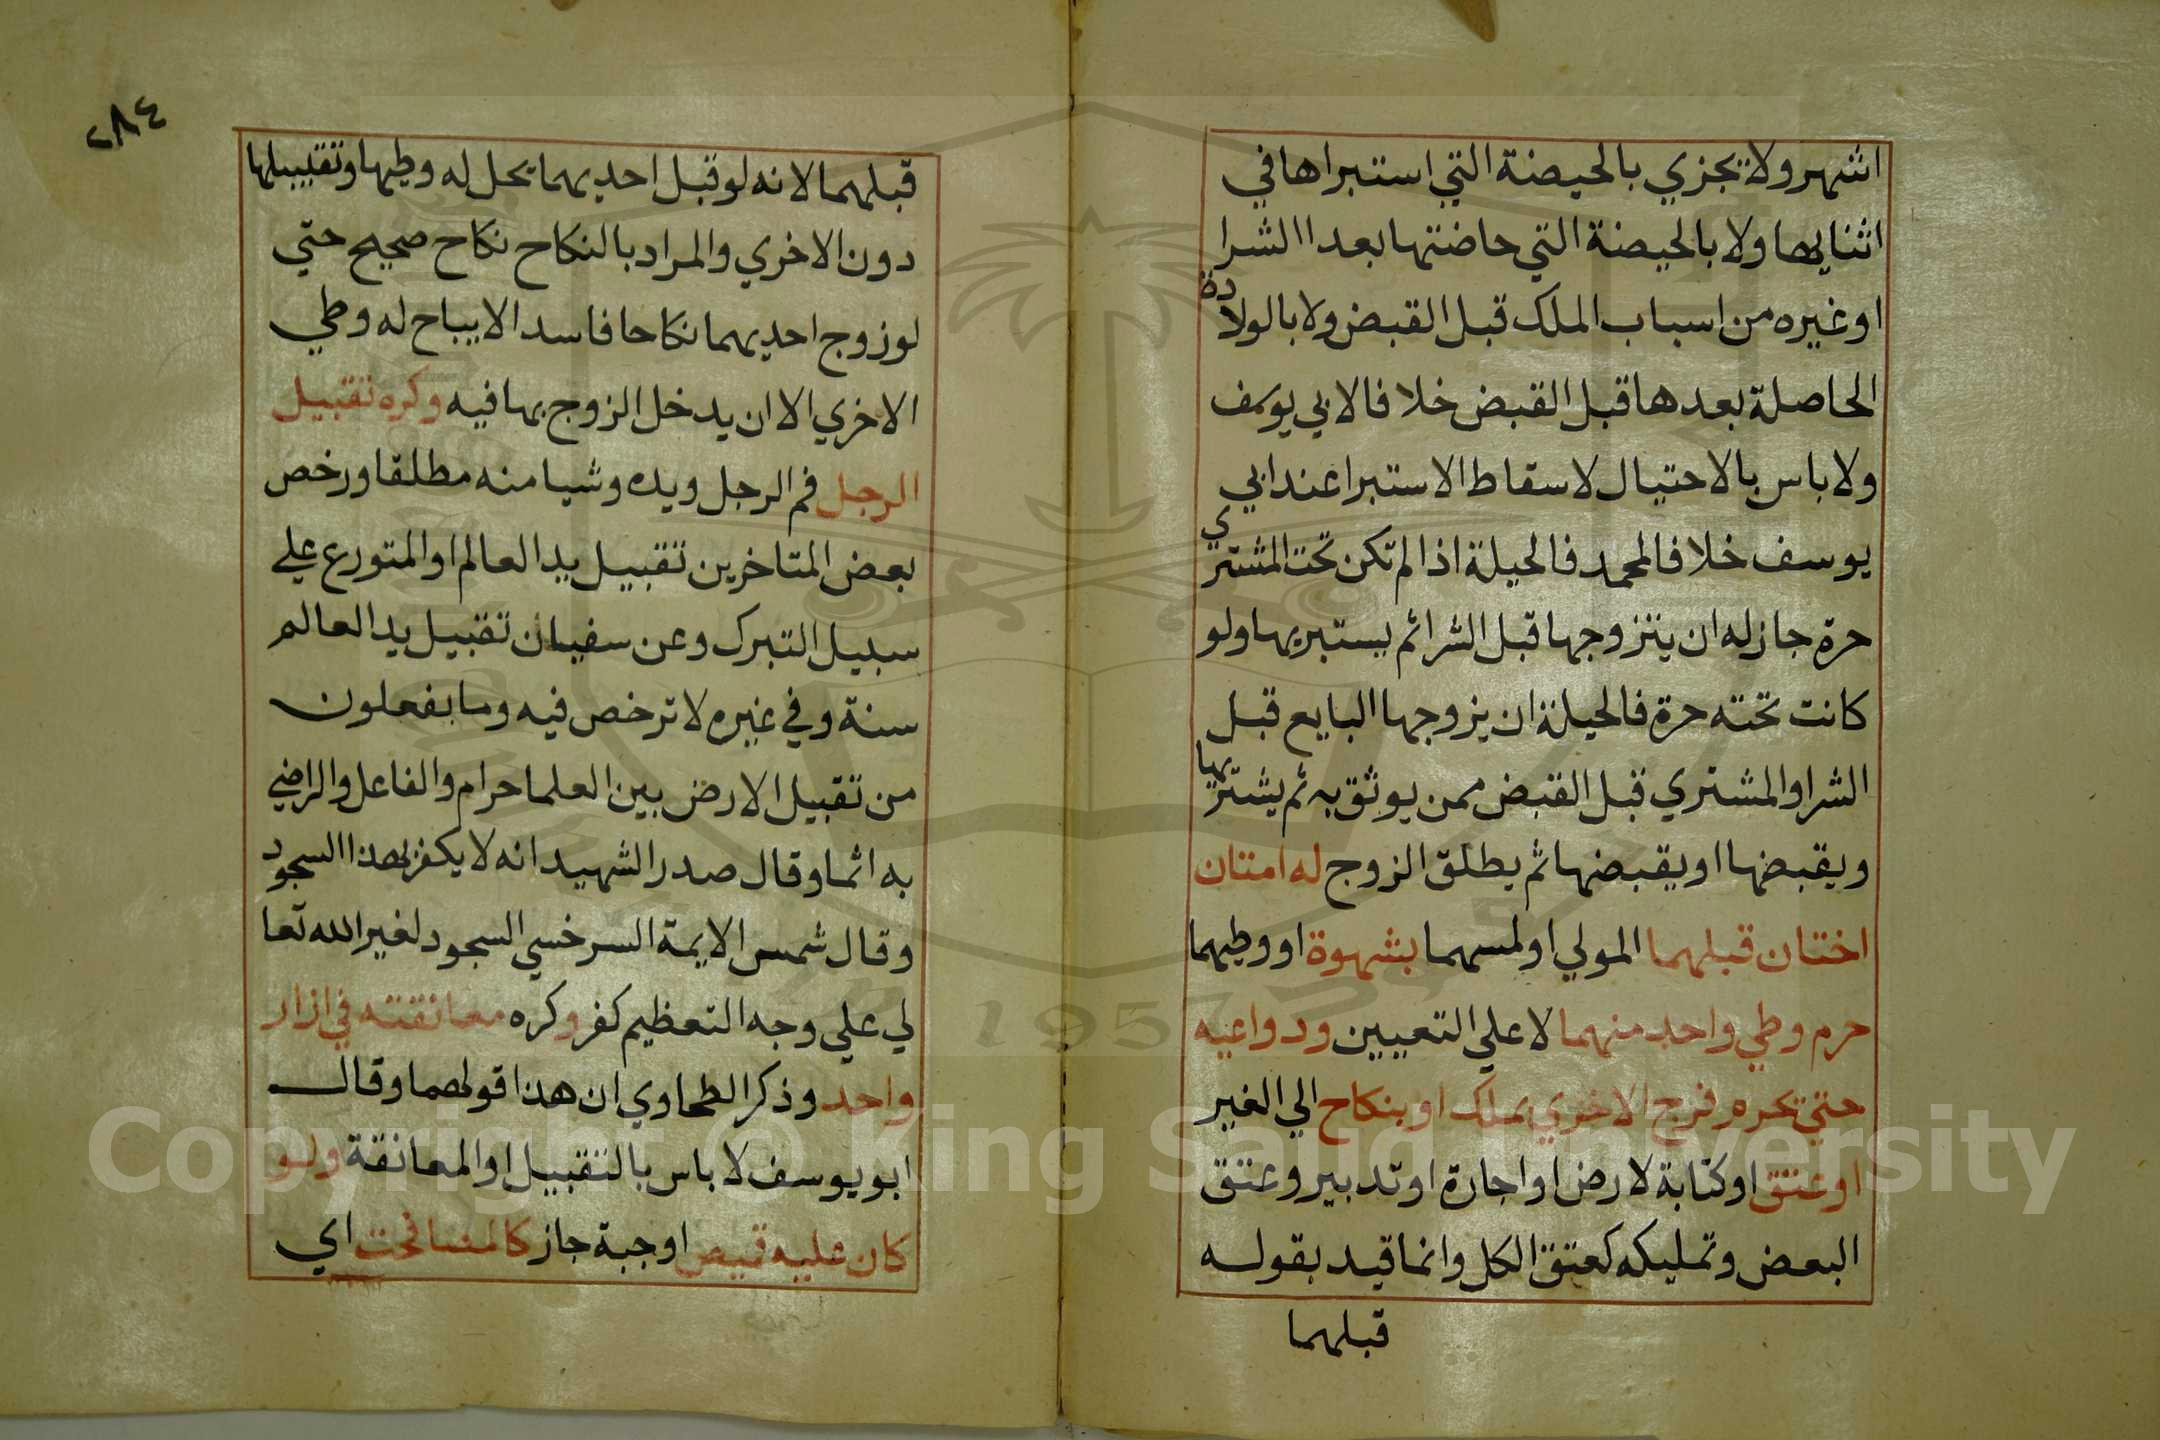 اشهر ولا تجزي بالحيضة التي استبراها في
اثنايها ولا بالحيضة التي حاضتها بعد الشرا
او غيره من اسباب الملك قبل القبض ولا بالولادة
الحاصلة بعدها قبل القبض خلافا لابي يوسف
ولا باس بالاحتيال لاسقاط الاستبرا عند ابي
يوسف خلافا لمحمد فالحيلة اذا لم تكن تحت المشتري
حرة جاز له ان يتزوجها قبل الشرا ثم يستبريها ولو
كانت تحته حرة فالحيلة ان يزوجها البايع قبل
الشرا والمشتري قبل القبض ممن يوثق به ثم يشتريها
ويقبضها او يقبضها ثم يطلق الزوج له امتان
اختان قبلهما المولي او لمسهما بشهوة او وطيهما
حرم وطي واحد منهما لا علي التعيين ودواعيه
حتي تحره فرج الاخري بملك او بنكاح الي الغير
او عتق او كتابة لا رهن او اجارة او تدبير وعتق
البعض وتمليكه كعتق الكل وانما قيد بقوله
قبلهما
٢٨٤
قبلهما لانه لو قبل احديهما يحل له وطيها وتقبيلها
دون الاخري والمراد بالنكاح نكاح صحيح حتي
لو زوج احديهما نكاحا فاسدا لا يباح له وطي
الاخري الا ان يدخل الزوج بها فيه وكره تقبيل
الرجل فم الرجل ويده وشيا منه مطلقا ورخص
بعض المتاخرين تقبيل يد العالم او المتورع علي
سبيل التبرك وعن سفيان تقبيل يد العالم
سنة وفي غيره لا ترخص فيه وما يفعلون
من تقبيل الارض بين العلما حرام والفاعل والراضي
به اثما وقال صدر الشهيد انه لا يكفر بهذا السجود
وقال شمس الايمة السرخسي السجود لغير الله تعا
لي علي وجه التعظيم كفر وكره معانقته في ازار
واحد وذكر الطحاوي ان هذا قولهما وقال
ابو يوسف لا باس بالتقبيل او المعانقة ولو
كان عليه قميص او جبة جاز كالمصافحت اي
Copyright © King Saud University
1957